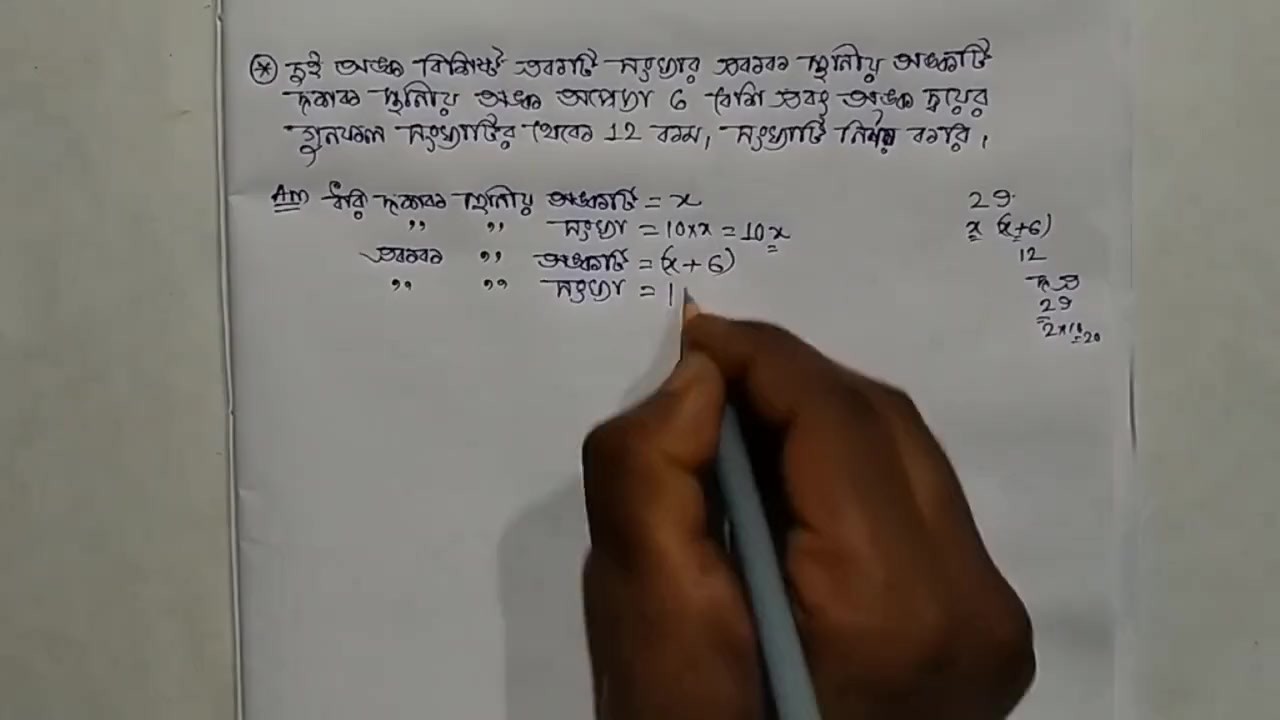 * দুই অঙ্ক বিশিষ্ট একটি সংখ্যার একক স্থানীয় অঙ্কটি
দশক স্থানীয় অঙ্ক অপেক্ষা 6 বেশি এবং অঙ্ক দ্বয়ের
গুনফল সংখ্যাটির থেকে 12 কম, সংখ্যাটি নির্ণয় করি।
Ans ধরি দশক স্থানীয় অঙ্কটি = x
,, ,, সংখ্যা = 10×x = 10x
একক ,, অঙ্কটি = (x + 6)
,, ,, সংখ্যা = 1
29
x (x+6)
12
দ এ
29
2×10=20